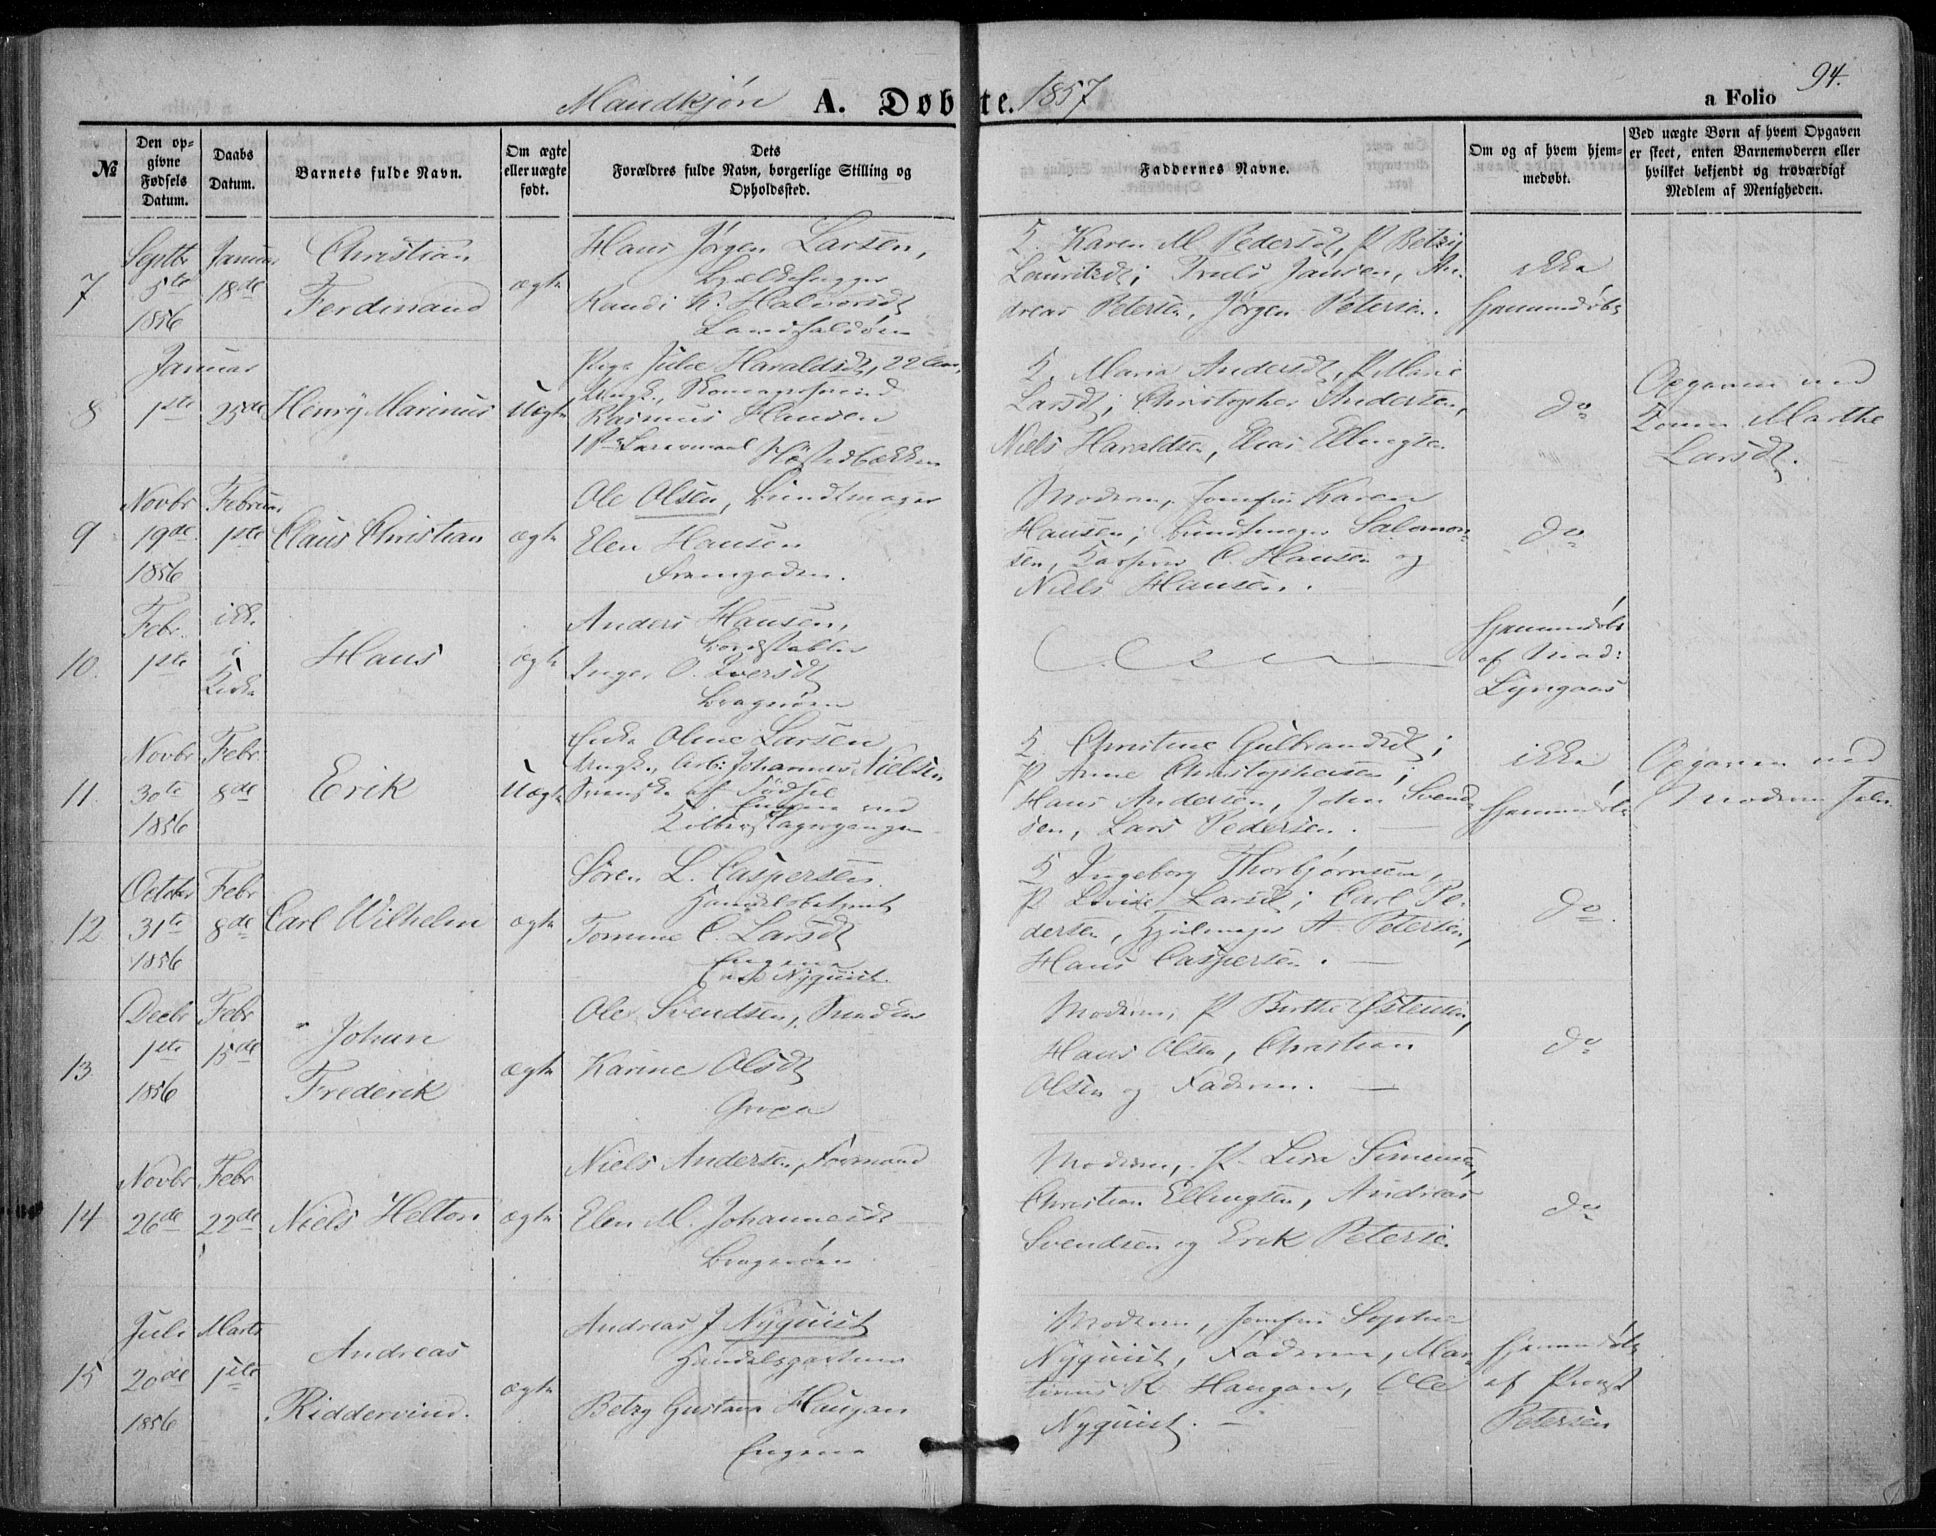 Mandkjøn A. Døbte. 1857
a Folio 94.
№
Den opgivne Fødsels Datum.
Daabs Datum.
Barnets fulde Navn.
Om ægte eller uægte født.
Dets Forældres fulde Navn, borgerlige Stilling og Opholdssted.
Faddernes Navne.
Om og af hvem hjemmedøbt.
Ved uægte Børn af hvem Opgaven er skeet, enten Barnemoderen eller hvilket bekjendt og troværdigt Medlem af Menigheden.
7
Septbr 5te 1856
Januar 18de
Christian
Ferdinand
ægte
Hans Jørgen Larsen,
Randi Halvorsdt
K. Karen M. Pedersdt, P. Betzy
Lauritzdt; Truls Jansen, An-
dreas Petersen, Jørgen Petersen.
ikke
hjemmedøbt
8
Januar
1ste
25de
Henry Marinus
Uægte
Pige Julie Haraldsdt, 22 Aar,
Rasmus Hansen
K. Maria Andersdt, P. Marie
Larsdt; Christopher Andersen,
Niels Haraldsen, Elias Ellingsen.
do
Opgaven ved
Konen Marthe
Larsdt.
9
Novbr 19de 1856
Februar 1ste
Claus Christian
ægte
Ole Olsen, Bundtmager
Elen Hansen
Moderen, Jomfru Karen
Hansen; Bundtmager Salomon-
sen, C. Hansen og
Niels Hansen.
do
10.
Febr. 1ste
ikke i Kirke
Hans
ægte
Anders Hansen,
Inger O. Iversdt
Bragerøen
hjemmedøbt
af Mad:
Lyngaas
11.
Novbr 30te 1856
Febr 8de
Erik
Uægte
Enke Oline Larsen
Ungk., Arb: Johannes Nielsen
Svensk af Fødsel
Engene ved
K. Christine Gulbrandsdt;
P. Anne Christophersen;
Hans Andersen, John Svend-
sen, Lars Pedersen.
ikke
hjemmedøbt
Opgaven ved
Moderen selv
12
October 31te 1856
Febr 8de
Carl Wilhelm
ægte
Søren L. Caspersen
Handelsbetjent
Tomine C. Larsdt
Engene
Nyquist.
K. Ingeborg Thorbjørnsen,
P. Lovise Larsdt; Carl Pe-
dersen, Hjulmager A. Petersen,
Hans Caspersen.
do
13
Decbr 1ste 1856
Febr 15de
Johan
Frederik
ægte
Ole Svendsen, Snedker
Karine Olsdt
Moderen; P. Berthe Østensen,
Hans Olsen, Christian
Olsen og Faderen.
do
14
Novbr 26de
Febr 22de
Niels Helton
ægte
Niels Andersen, Formand
Elen M. Johannesdt
Bragerøen
Moderen, P. Lisa Simensen,
Christian Ellingsen, Andreas
Svendsen og Erik Petersen.
do
15
Juli 20de 1856
Marts 1ste
Andreas
Riddervind.
ægte
Andreas J. Nyquist
Handelsgartner
Betzy Gustava Haugan
Engene
Moderen, Jomfru Sophie
Nyquist, Faderen, Mar-
tinus R. Haugan, Ole
Nyquist.
hjemmedøbt
af Provst
Petersen